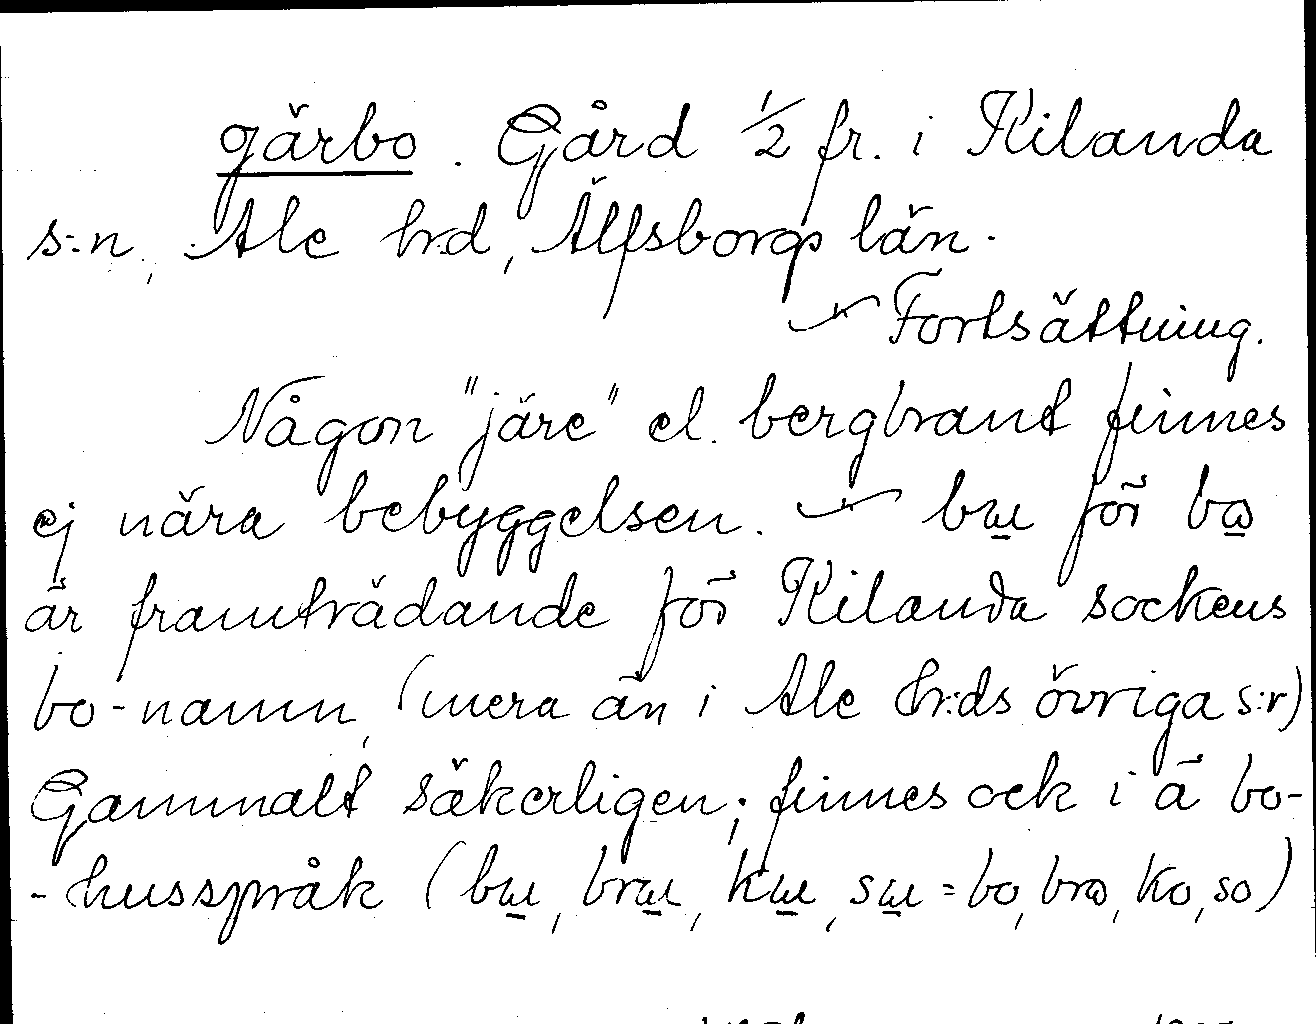 gärbo. Gård 1/2 fr. i Kilanda
s:n, Ale h:d, Älfsborgs län.
Fortsättning.
Någon "järe" el. bergbrant finnes
ej nära bebyggelsen. – bɯ för bɷ
är framträdande för Kilanda sockens
bo-namn, (mera än i Ale h:ds övriga s:r)
Gammalt säkerligen; finnes ock i ä bo-
-husspråk (bɯ, brɯ, kɯ, sɯ = bo, bro, ko, so)